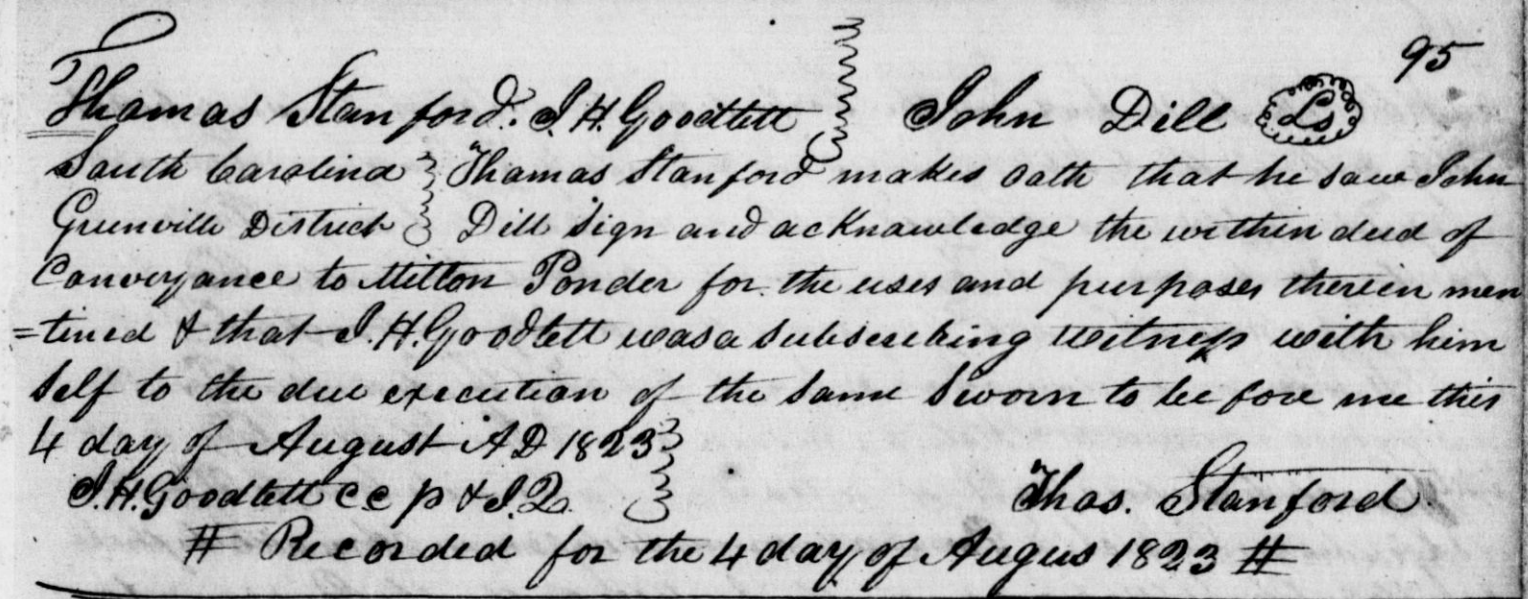 95
Thomas Stanford. J. H. Goodlett John Dill Ls
South Carolina Thomas Stanford makes oath that he saw John
Greenville District Dill sign and acknowledge the within deed of
Conveyance to Milton Ponder for the uses and purposes therein men
=tined & that J. H. Goodlett was a subscribing witness with him
self to the due execution of the same Sworn to before me this
4 day of August AD 1823
J. H. Goodlett C C p & J. Q. Thos. Stanford.
# Recorded for the 4 day of Augus 1823 #